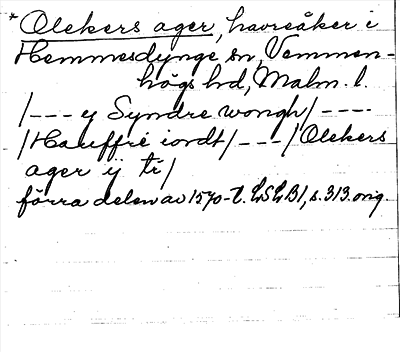 * Olekers ager, havreåker i
Hemmesdynge sn, Vemmen-
högs hd, Malm. l.
/--- ey Syndre wongh/----
/Hauffre iordt/---/Olekers
ager ij ti/
förra delen av 1570-t. LSLB1, s. 313. orig.